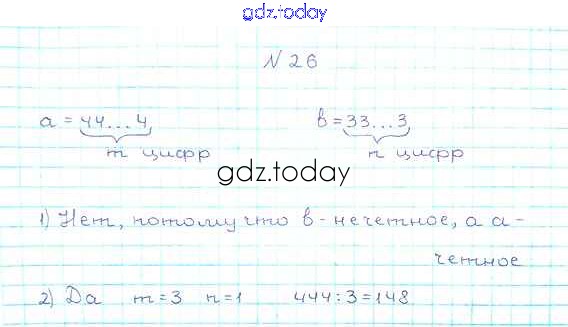 gdz.today
N 26
a = 44...4 в = 33...3
m цифр n цифр
gdz.today
1) Нет, потому что в - нечетное, а а -
четное
2) Да m = 3 n = 1 444 : 3 = 148